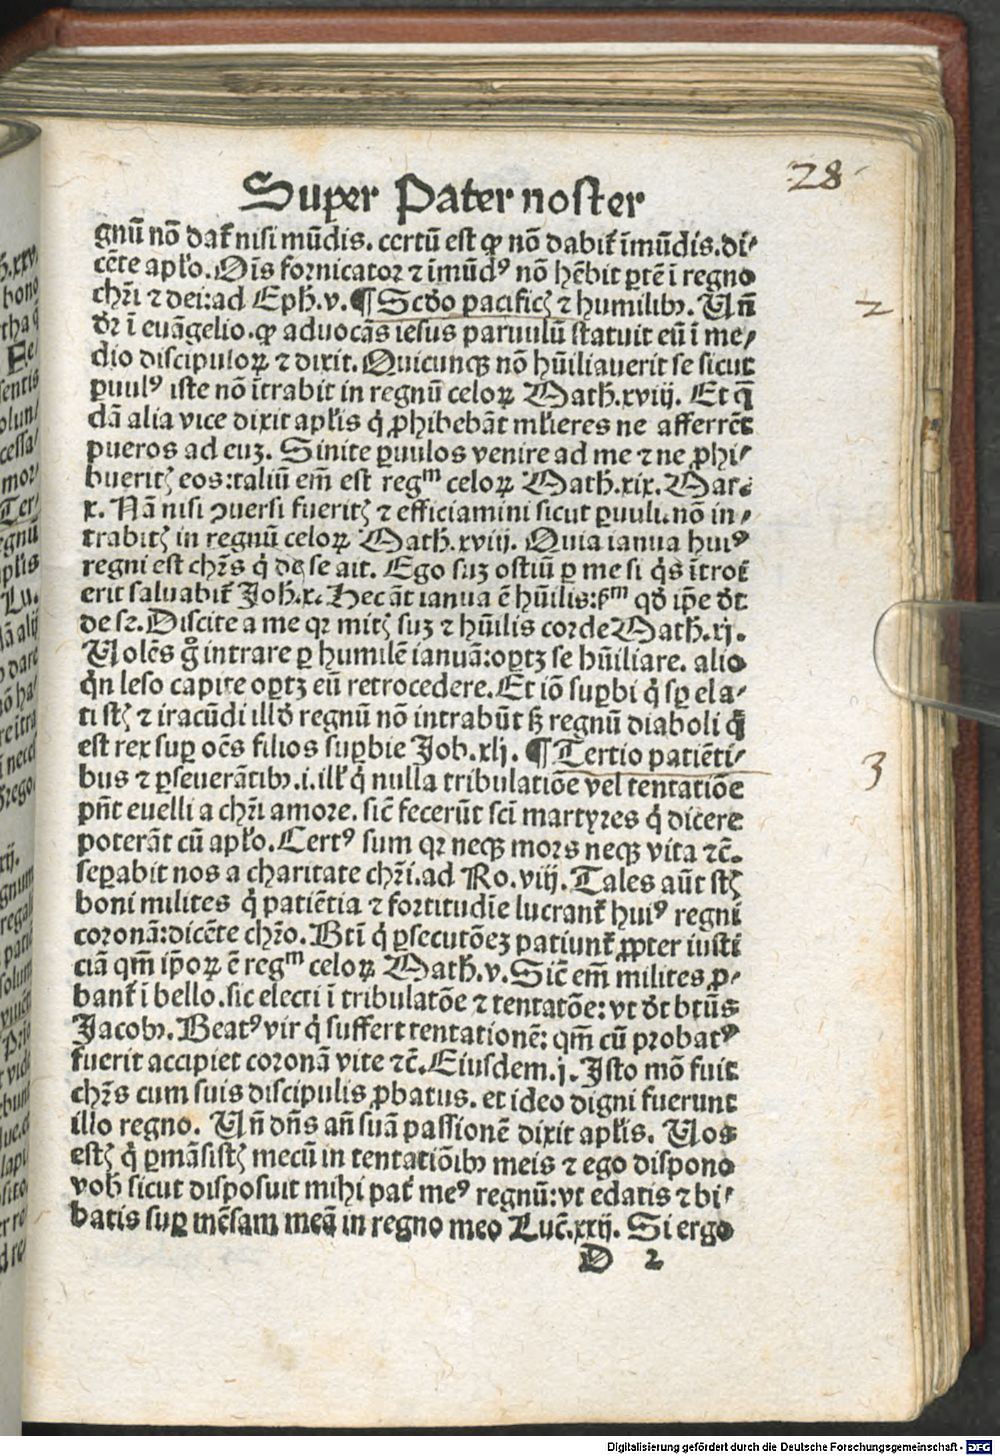 28
Super Pater noster
gnū nō dat̄ nisi mūdis. certū est ꝙ nō dabit̄ īmūdis. di⸗
cēte apl̄o. Oīs fornicator ⁊ īmūdꝰ nō hēbit ꝑtē ī regno
chr̄i ⁊ dei: ad Eph̄. v. ¶ Scd̄o pacificꝭ ⁊ humilibꝫ. Vñ
dr̄ ī euāgelio. ꝙ aduocās iesus paruulū statuit eū ī me⸗
dio discipuloꝝ ⁊ dixit. Quicunqꝫ nō hūiliauerit se sicut
ꝑuulꝰ iste nō ītrabit in regnū celoꝝ Math̄. xviij. Et q̄
dā alia vice dixit apl̄is q̇ ꝓhibebāt ml̄ieres ne afferrēt
pueros ad euꝫ. Sinite ꝑuulos venire ad me ⁊ ne ꝓhi⸗
bueritꝭ eos: taliū em̄ est regᵐ celoꝝ Math̄. xix. Mar.
x. Nā nisi ꝯuersi fueritꝭ ⁊ efficiamini sicut ꝑuuli. nō in⸗
trabitꝭ in regnū celoꝝ Math̄. xviij. Quia ianua huiꝰ
regni est chr̄s q̇ de se ait. Ego suꝫ ostiū ꝑ me si q̇s ītroi
erit saluabit̄ Joh̄. x. Hec āt ianua ē hūilis: ẜᵐ qd̄ ip̄e dt̄
de se. Discite a me qꝛ mitꝭ suꝫ ⁊ hūilis corde Math̄. xj.
Volēs g̊ intrare ꝑ humilē ianuā: oꝑtꝫ se hūiliare. alio
q̇n leso capite oꝑtꝫ eū retrocedere. Et iō suꝑbi q̇ sꝑ ela⸗
ti stꝭ ⁊ iracūdi illd̄ regnū nō intrabūt sꝫ regnū diaboli q̇
est rex suꝑ oēs filios suꝑbie Job. xlj. ¶ Tertio patiēti⸗
bus ⁊ ꝑseuerātibꝫ. i. ill̄ q̇ nulla tribulatiōe vel tentatiōe
pn̄t euelli a chr̄i amore. sic̄ fecerūt sci̅ martyres q̇ dicere
poterāt cū apl̄o. Certꝰ sum qꝛ neqꝫ mors neqꝫ vita ⁊c̄.
seꝑabit nos a charitate chr̄i. ad Ro. viij. Tales aūt stꝭ
boni milites q̇ patiētia ⁊ fortitudīe lucrant̄ huiꝰ regni
coronā: dicēte chr̄o. Bt̄i q̇ ꝑsecutōeꝫ patiunt̄ ꝓpter iusti
ciā qm̄ ip̄oꝝ ē regᵐ celoꝝ Math̄. v. Sic̄ em̄ milites ꝓ⸗
bant̄ ī bello. sic electi ī tribulatōe ⁊ tentatōe: vt dt̄ bt̄ūs
Jacobꝫ. Beatꝰ vir q̇ suffert tentationē: qm̄ cū probatꝰ
fuerit accipiet coronā vite ⁊c̄. Eiusdem. j. Isto mō fuit
chr̄s cum suis discipulis ꝓbatus. et ideo digni fuerunt
illo regno. Vñ dn̄s an̄ suā passionē dixit apl̄is. Vos
estꝭ q̇ ꝑmāsistꝭ mecū in tentatiōibꝫ meis ⁊ ego dispono
vob̄ sicut disposuit mihi pat̄ meꝰ regnū: vt edatis ⁊ bi⸗
batis suꝑ mēsam meā in regno meo Luc̄. xxij. Si ergo
D 2
2
3
Digitalisierung gefördert durch die Deutsche Forschungsgemeinschaft - DFG